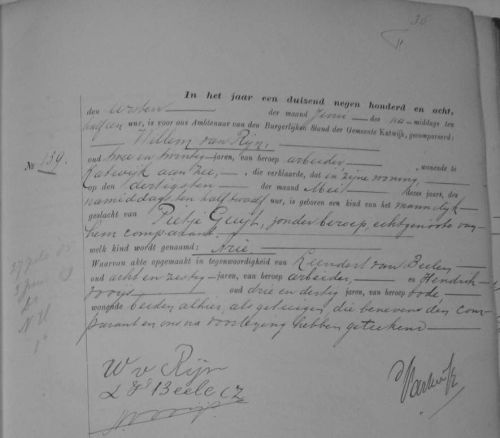 36
In het jaar een duizend negen honderd en acht,
den eersten der maand Juni des na middags ten
uur, is voor ons Ambtenaar van den Burgerlijken Stand der Gemeente Katwijk, gecompareerd:
Willem van Rijn,
No. 139.
oud twee en twintig jaren, van beroep arbeider, wonende te
Katwijk aan Zee, die verklaarde, dat in zijne woning,
op den dertigsten der maand Mei dezes jaars, des
namiddags ten half twaalf uur, is geboren een kind van het mannelijk
geslacht van Pietje Gluijt, zonder beroep, echtgenoote van
hem comparant.
welk kind wordt genaamd: Arie.
Waarvan akte opgemaakt in tegenwoordigheid van Leendert van Beelen
oud acht en zestig jaren, van beroep arbeider, en Hendrik
oud drie en dertig jaren, van beroep bode,
wonende beiden alhier, als getuigen, die benevens den com-
parant en ons na voorlezing hebben geteekend
W v Rijn